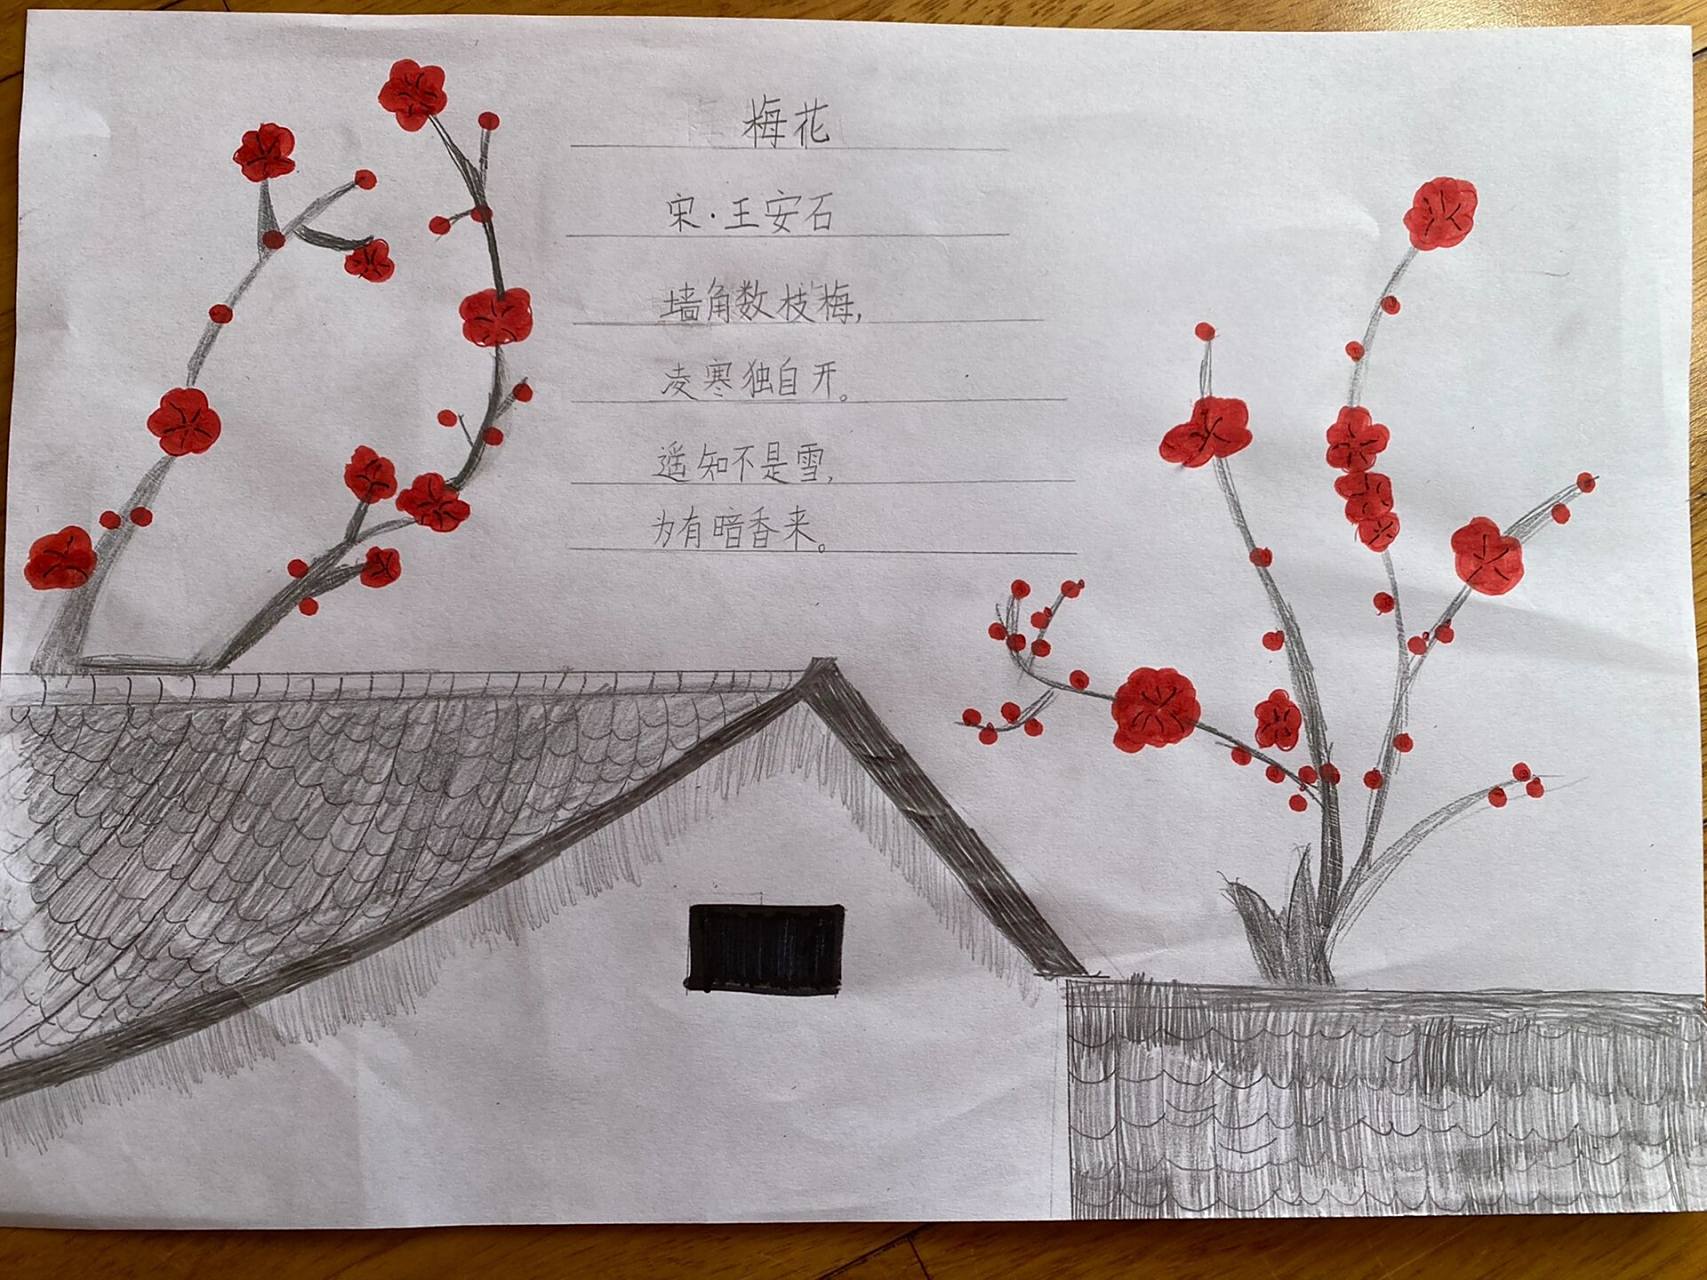 梅花
宋·王安石
墙角数枝梅,
凌寒独自开。
遥知不是雪,
为有暗香来。